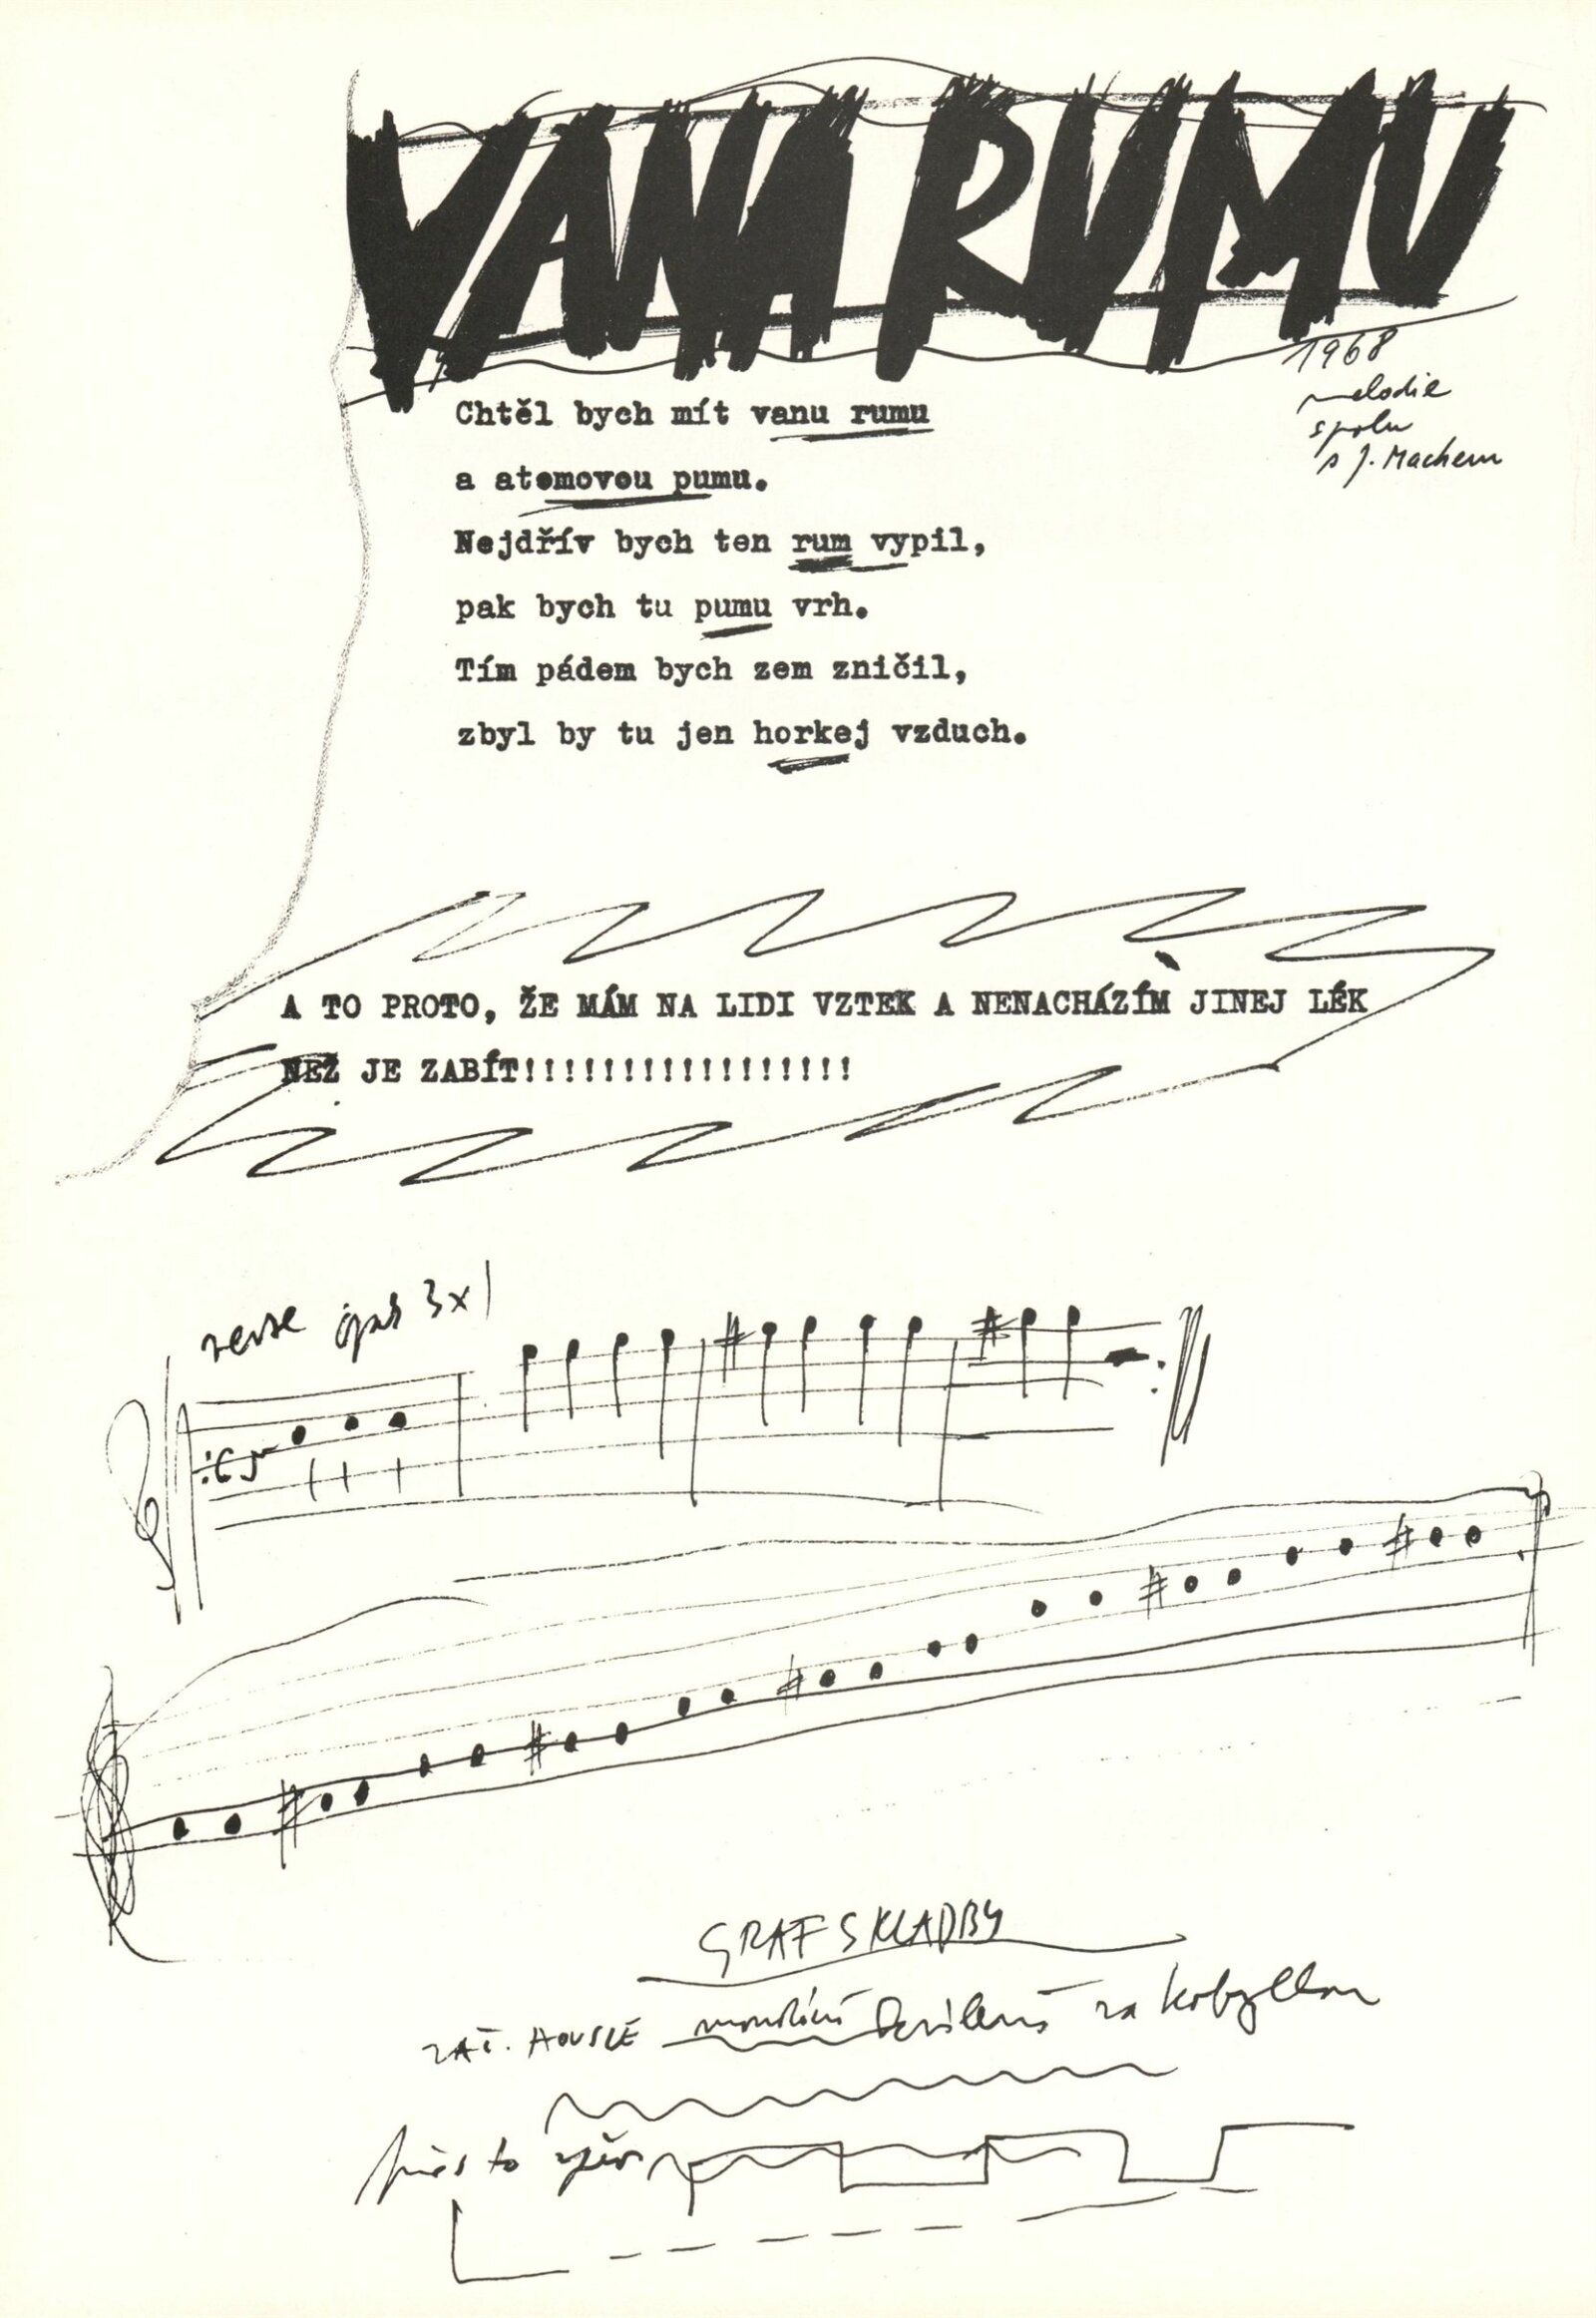 VANA RUMU
1968
melodie
spolu
s J. Machem
Chtěl bych mít vanu rumu
a atomovou pumu.
Nejdřív bych ten rum vypil,
pak bych tu pumu vrh.
Tím pádem bych zem zničil,
zbyl by tu jen horkej vzduch.
A TO PROTO, ŽE MÁM NA LIDI VZTEK A NENACHÁZÍM JINEJ LÉK
NEŽ JE ZABÍT!!!!!!!!!!!!!!!!!
3x
GRAF SKLADBY
ZAČ. HOUSLE za kobylkou
přes to zpěv